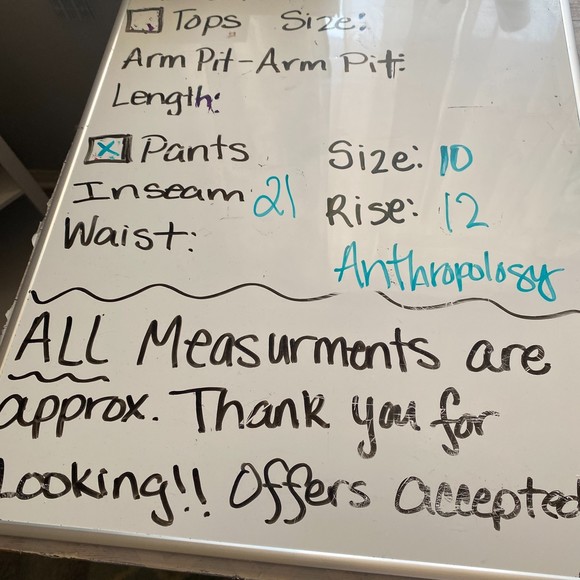 Tops Size:
Arm Pit-Arm Pit:
Length:
X Pants Size: 10
Inseam 21 Rise: 12
Waist:
Anthropology
ALL Measurments are
approx. Thank you for
Looking!! Offers accepted